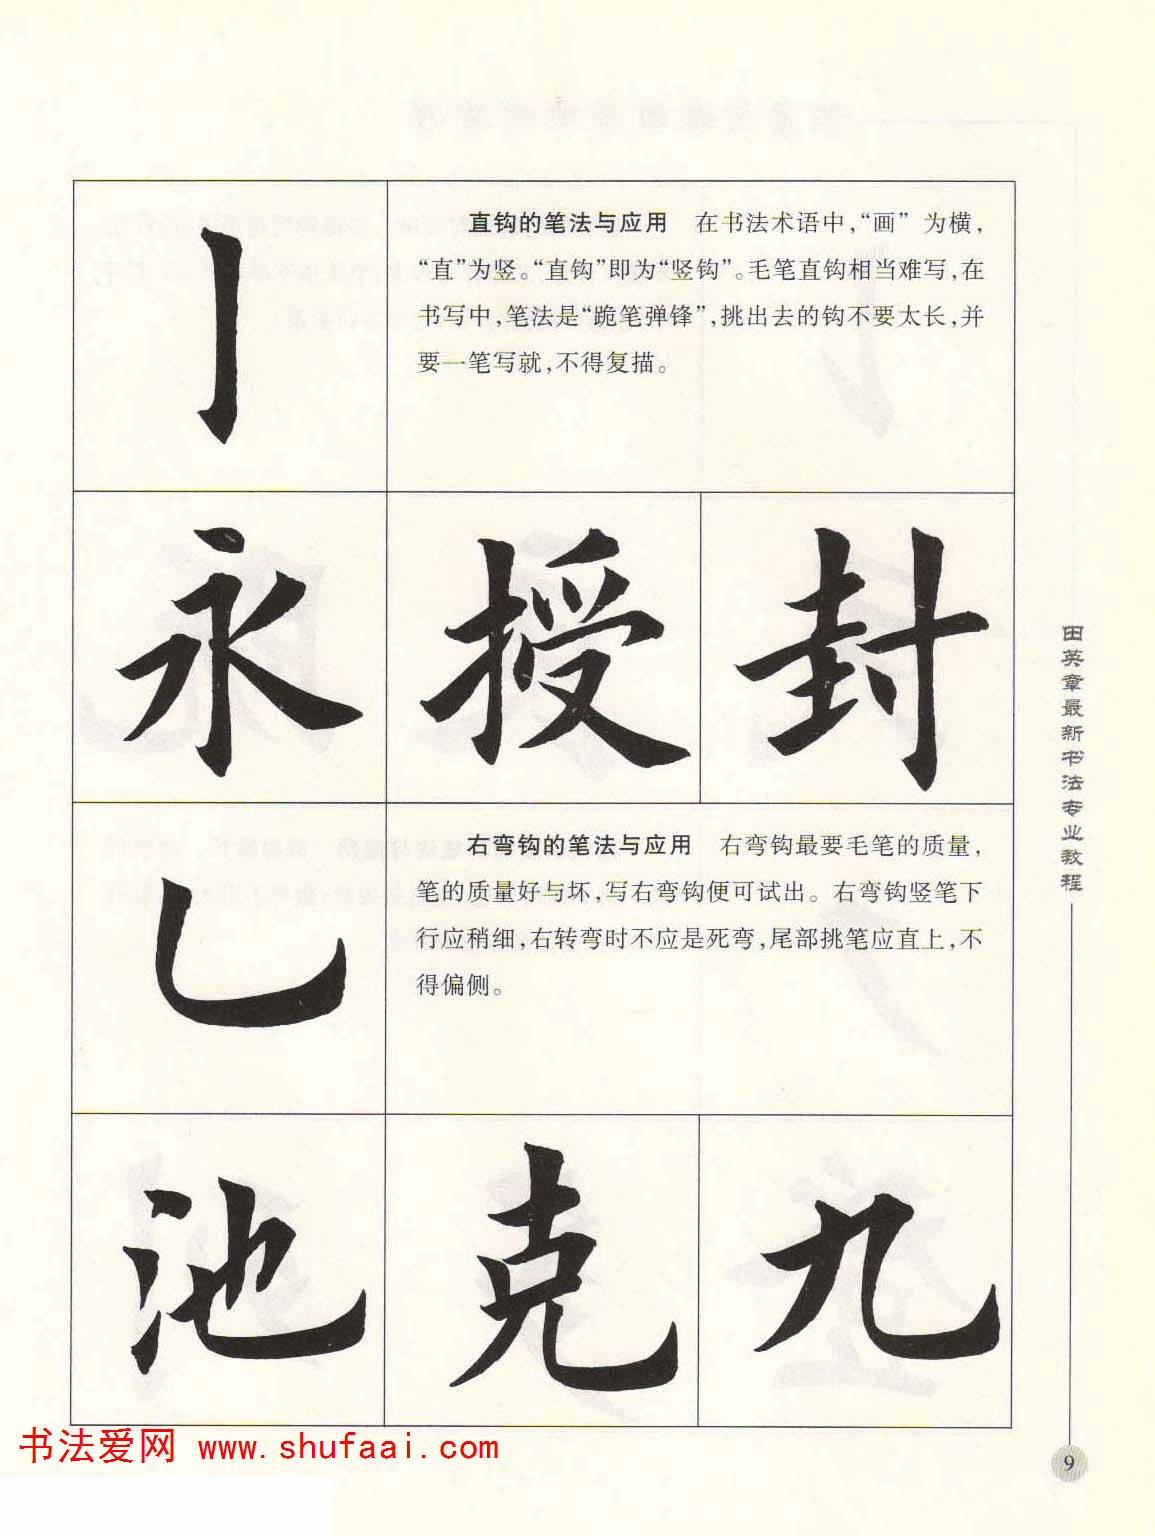 直钩的笔法与应用 在书法术语中，“画” 为横，
“直”为竖。“直钩”即为“竖钩”。毛笔直钩相当难写，在
书写中，笔法是“跪笔弹锋”，挑出去的钩不要太长，并
要一笔写就，不得复描。
永 授 封
右弯钩的笔法与应用 右弯钩最要毛笔的质量，
笔的质量好与坏，写右弯钩便可试出。右弯钩竖笔下
行应稍细，右转弯时不应是死弯，尾部挑笔应直上，不
得偏侧。
池 克 九
田英章最新书法专业教程
书法爱网 www.shufaai.com
9